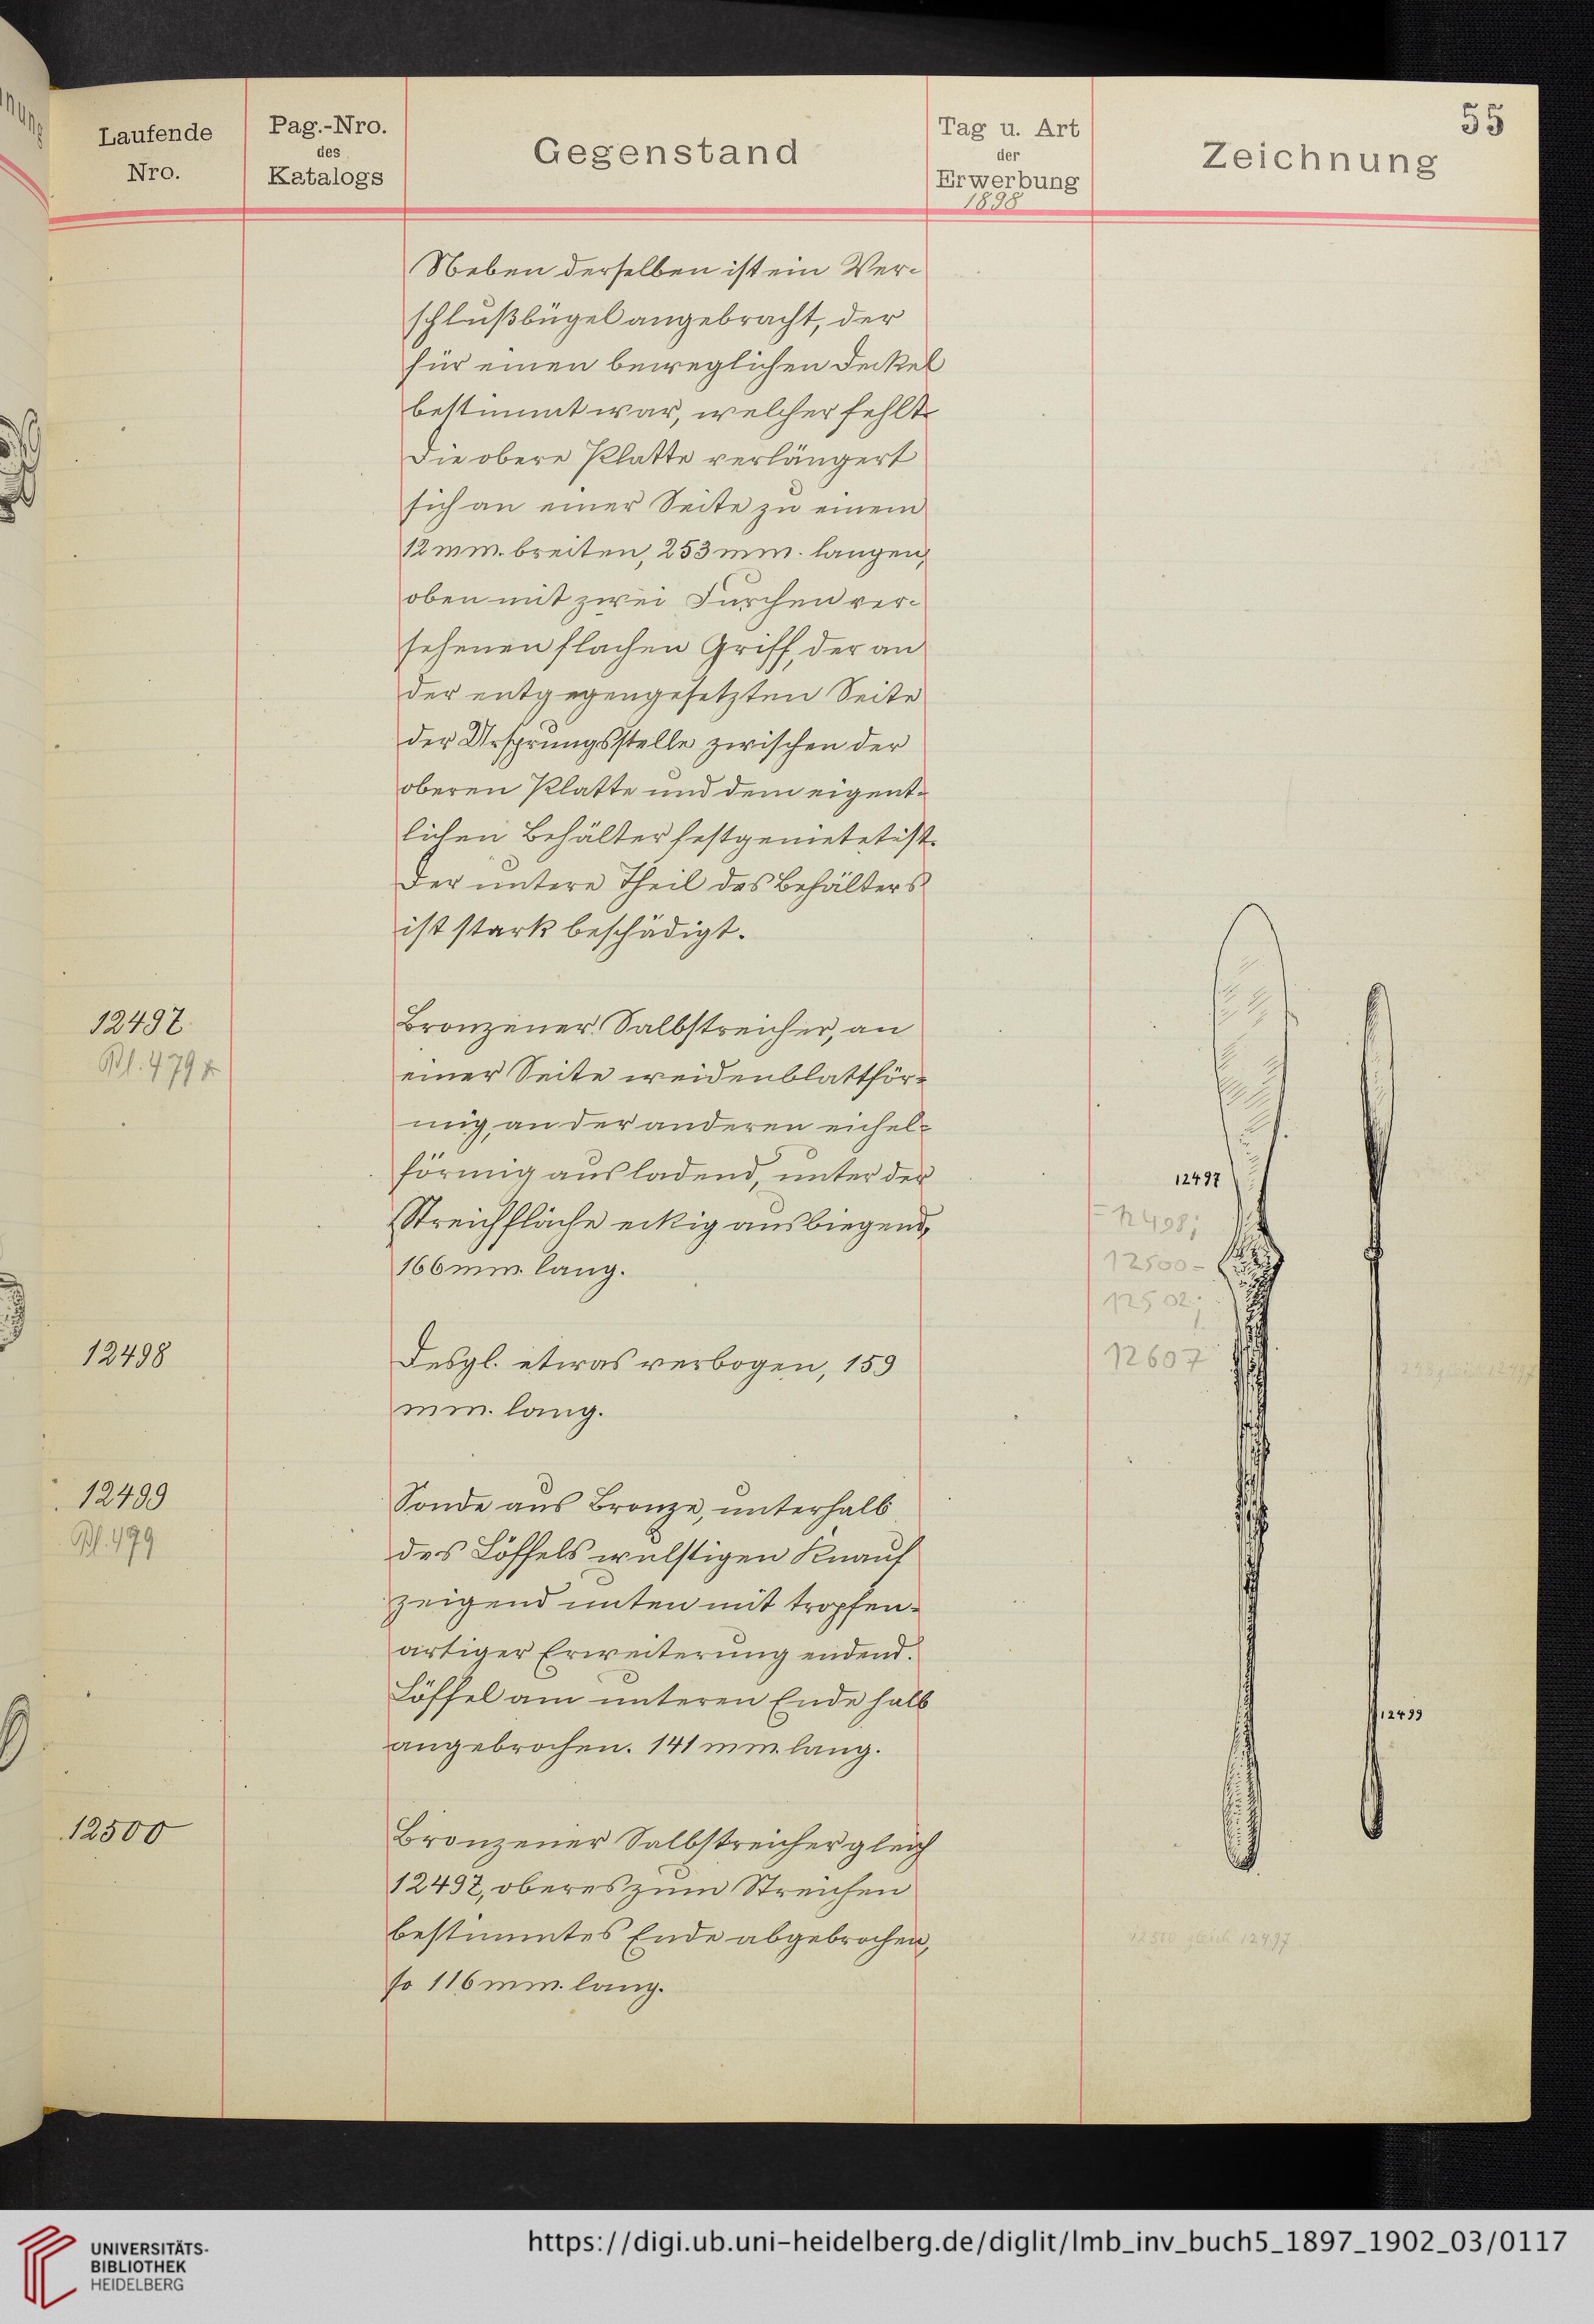 55
Laufende
Nro.
Pag.-Nro.
des
Katalogs
Gegenstand
Tag u. Art
der
Erwerbung
1898
Zeichnung
Neben derselben ist ein Ver-
schlußbügel angebracht, der
für einen beweglichen Deckel
bestimmt war, welcher fehlt.
Die obere Platte verlängert
sich an einer Seite zu einem
12 mm. breiten, 253 mm. langen,
oben mit zwei Furchen ver-
sehenen flachen Griff, der an
der entgegengesetzten Seite
der Ursprungsstelle zwischen der
oberen Platte und dem eigent-
lichen Behälter festgenietet ist.
Der untere Theil des Behälters
ist stark beschädigt.
12497.
Bl. 479
Bronzener Salbstreicher, an
einer Seite weidenblattför-
mig, an der anderen eichel-
förmig ausladend, unter der
Streichfläche eckig ausbiegend,
166 mm. lang.
12498
Desgl. etwas verbogen, 159
mm. lang.
12499
Bl. 479
Sonde aus Bronze, unterhalb
des Löffels wulstigen Knauf
zeigend unten mit tropfen-
artiger Erweiterung endend.
Löffel am unteren Ende halb
angebrochen. 141 mm. lang.
12500
Bronzener Salbstreicher gleich
12497, oberes zum Streichen
bestimmtes Ende abgebrochen,
so 116 mm. lang.
12497
= 12498;
12500-
12502;
12607
12499
12500 gleich 12497
UNIVERSITÄTS-
BIBLIOTHEK
HEIDELBERG
https://digi.ub.uni-heidelberg.de/diglit/lmb_inv_buch5_1897_1902_03/0117